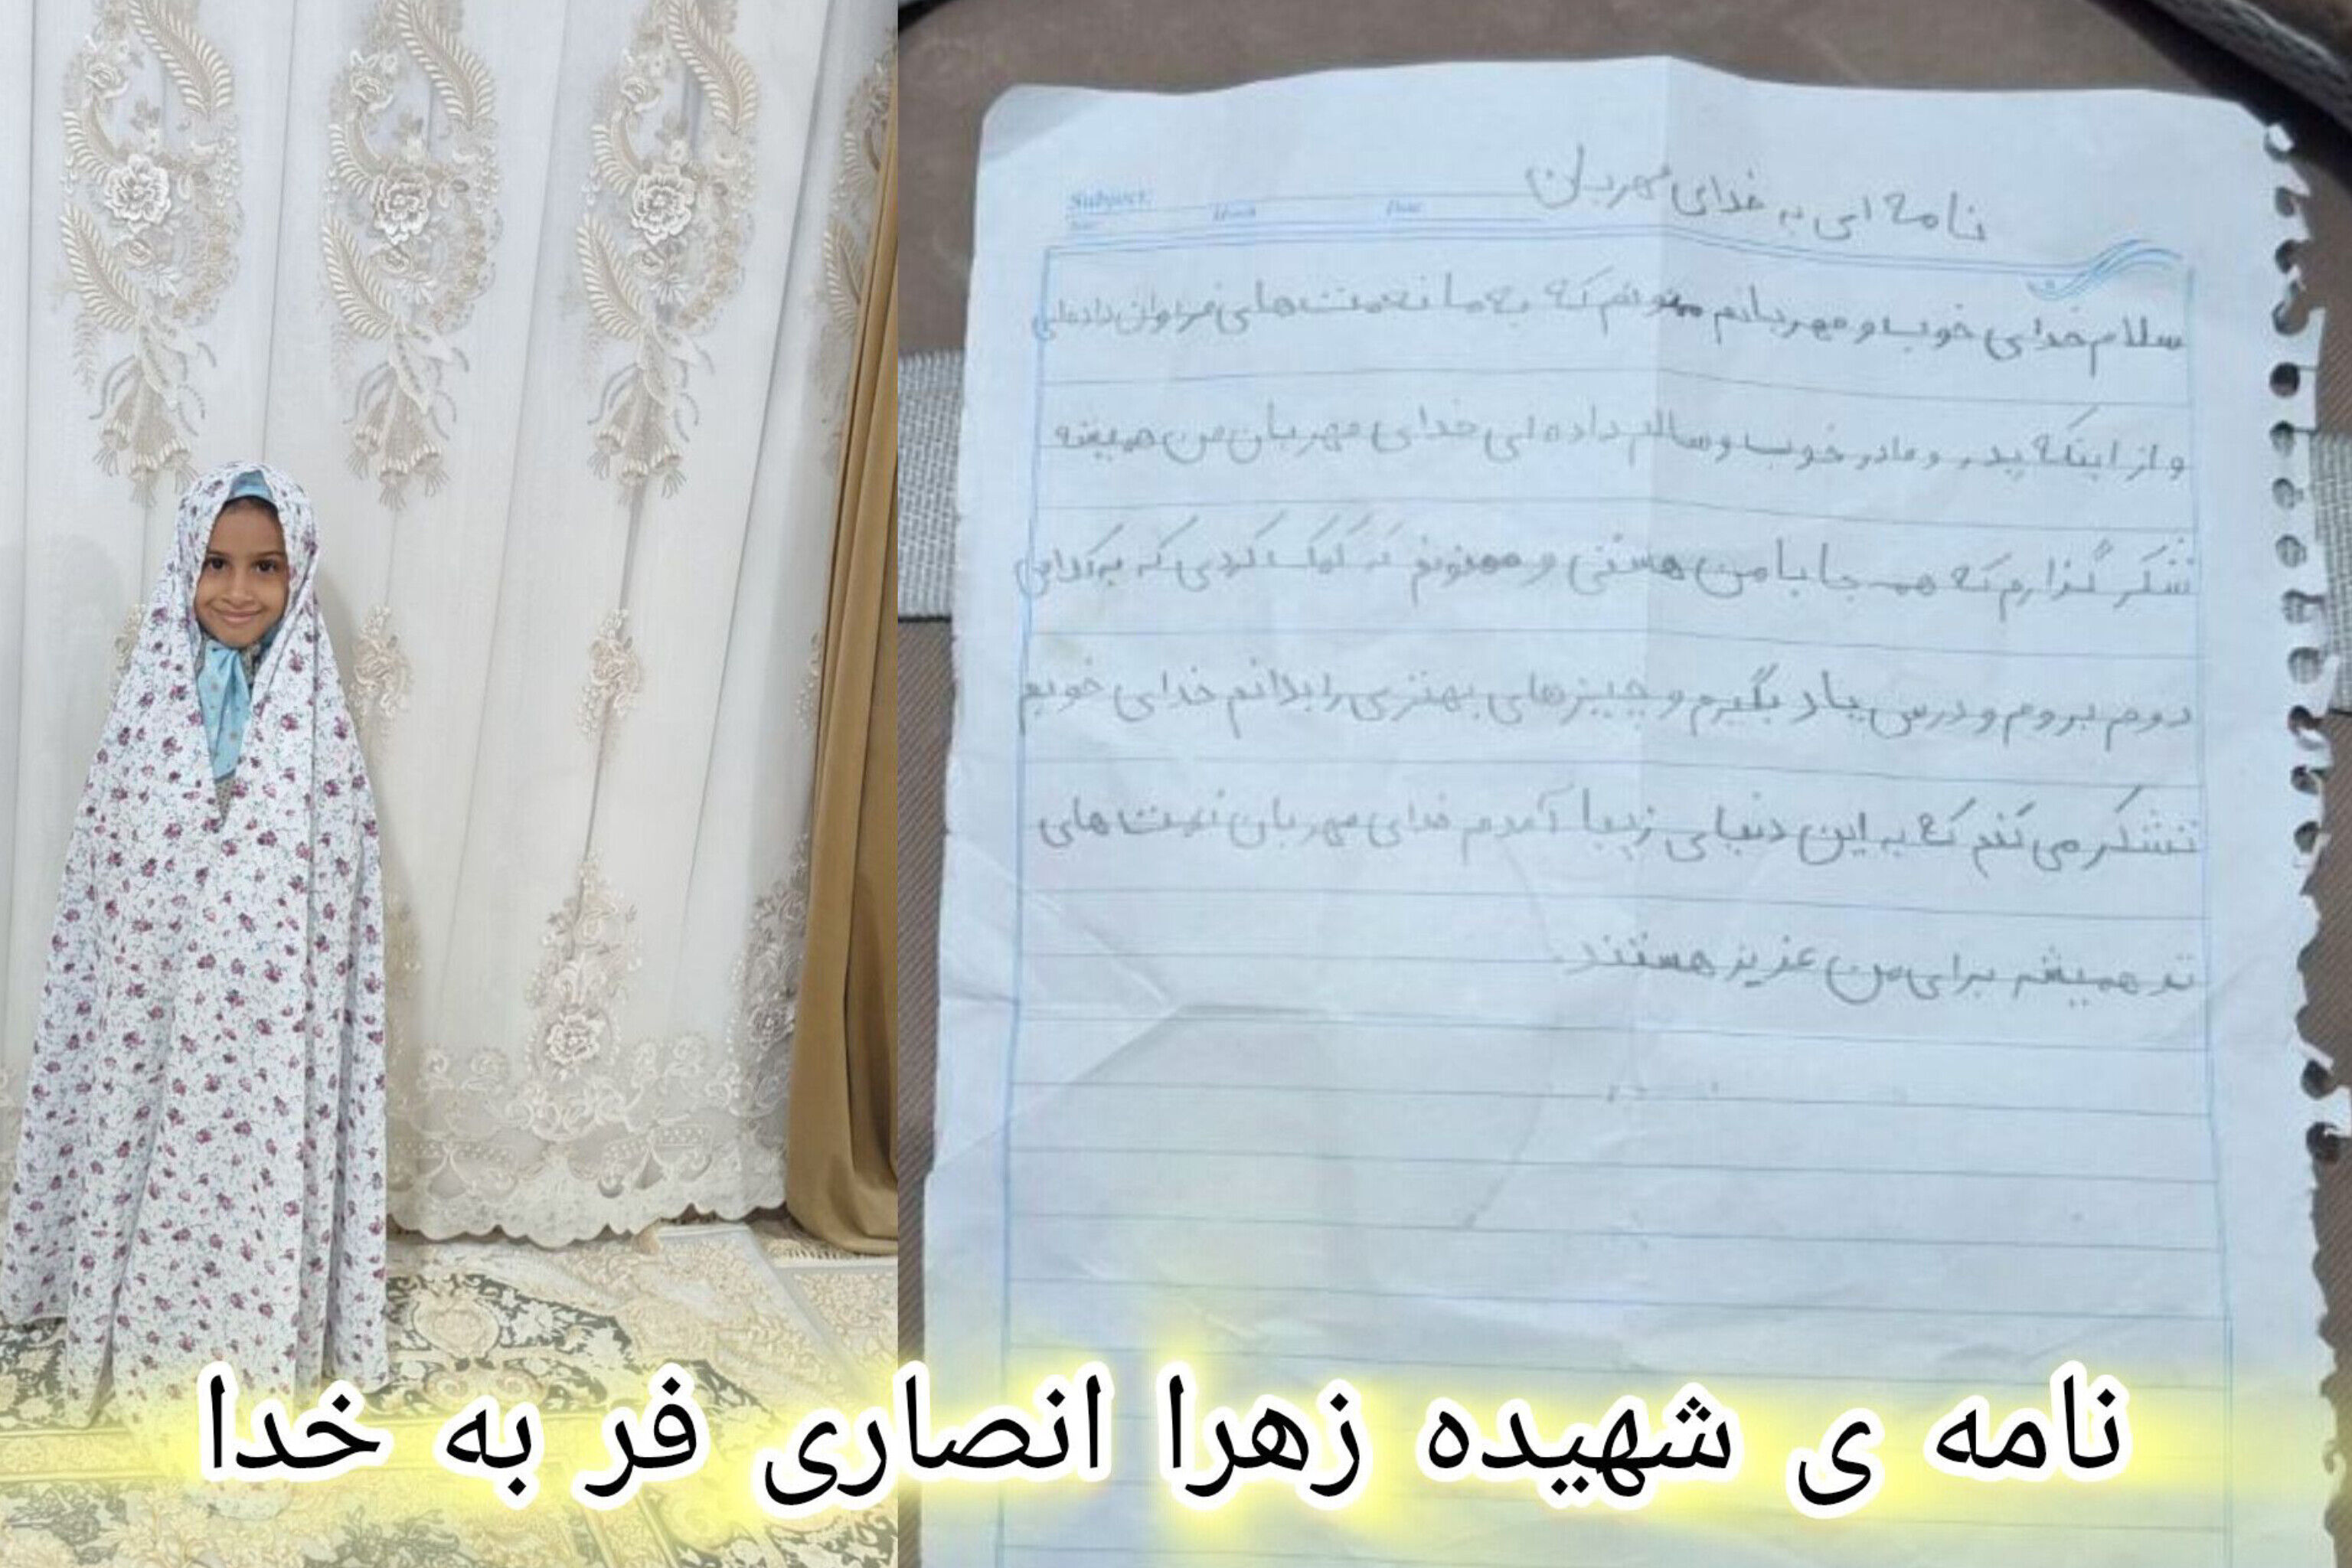 Subject:
Date
نامه ای به خدای مهربان
سلام خدای خوب و مهربانم ممنونم که به ما نعمت های فراوان داده ای
و از اینکه پدر و مادر خوب و سالم داده ای خدای مهربان من همیشه
شکر گزارم که همه جا با من هستی و ممنونم که کمک کردی که به کلاس
دوم بروم و درس یاد بگیرم و چیزهای بهتری را بدانم خدای خوبم
تشکر می کنم که به این دنیای زیبا آمدم خدای مهربان نعمت های
تو همیشه برای من عزیز هستند.
نامه ی شهیده زهرا انصاری فر به خدا